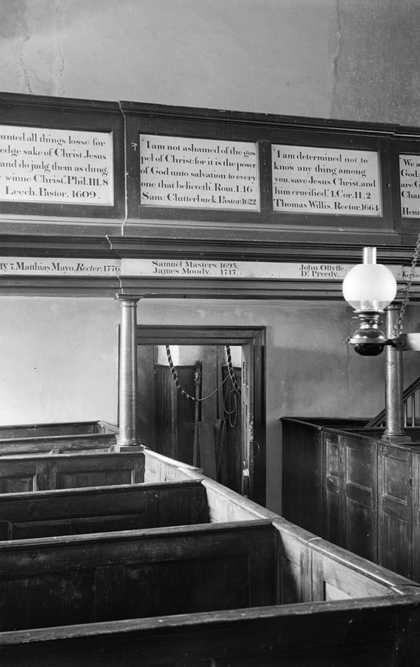 unted all things losse for
edge sake of Christ Jesus
and do judg them as dung,
winne Christ. Phil.III.8
Leech. Pastor. 1609.
I am not ashamed of the gos
pel of Christ: for it is the power
of God unto salvation to every
one that believeth. Rom. I.16
Sam: Clutterbuck. Pastor: 1622
I am determined not to
know any thing among
you, save Jesus Christ, and
him crucified. I. Cor. II. 2
Thomas Willis. Rector: 1664
We
God
are
Matthias Mayo. Rector: 1776
Samuel Masters. 1693.
James Moody. 1717.
John
Dr. Preedy